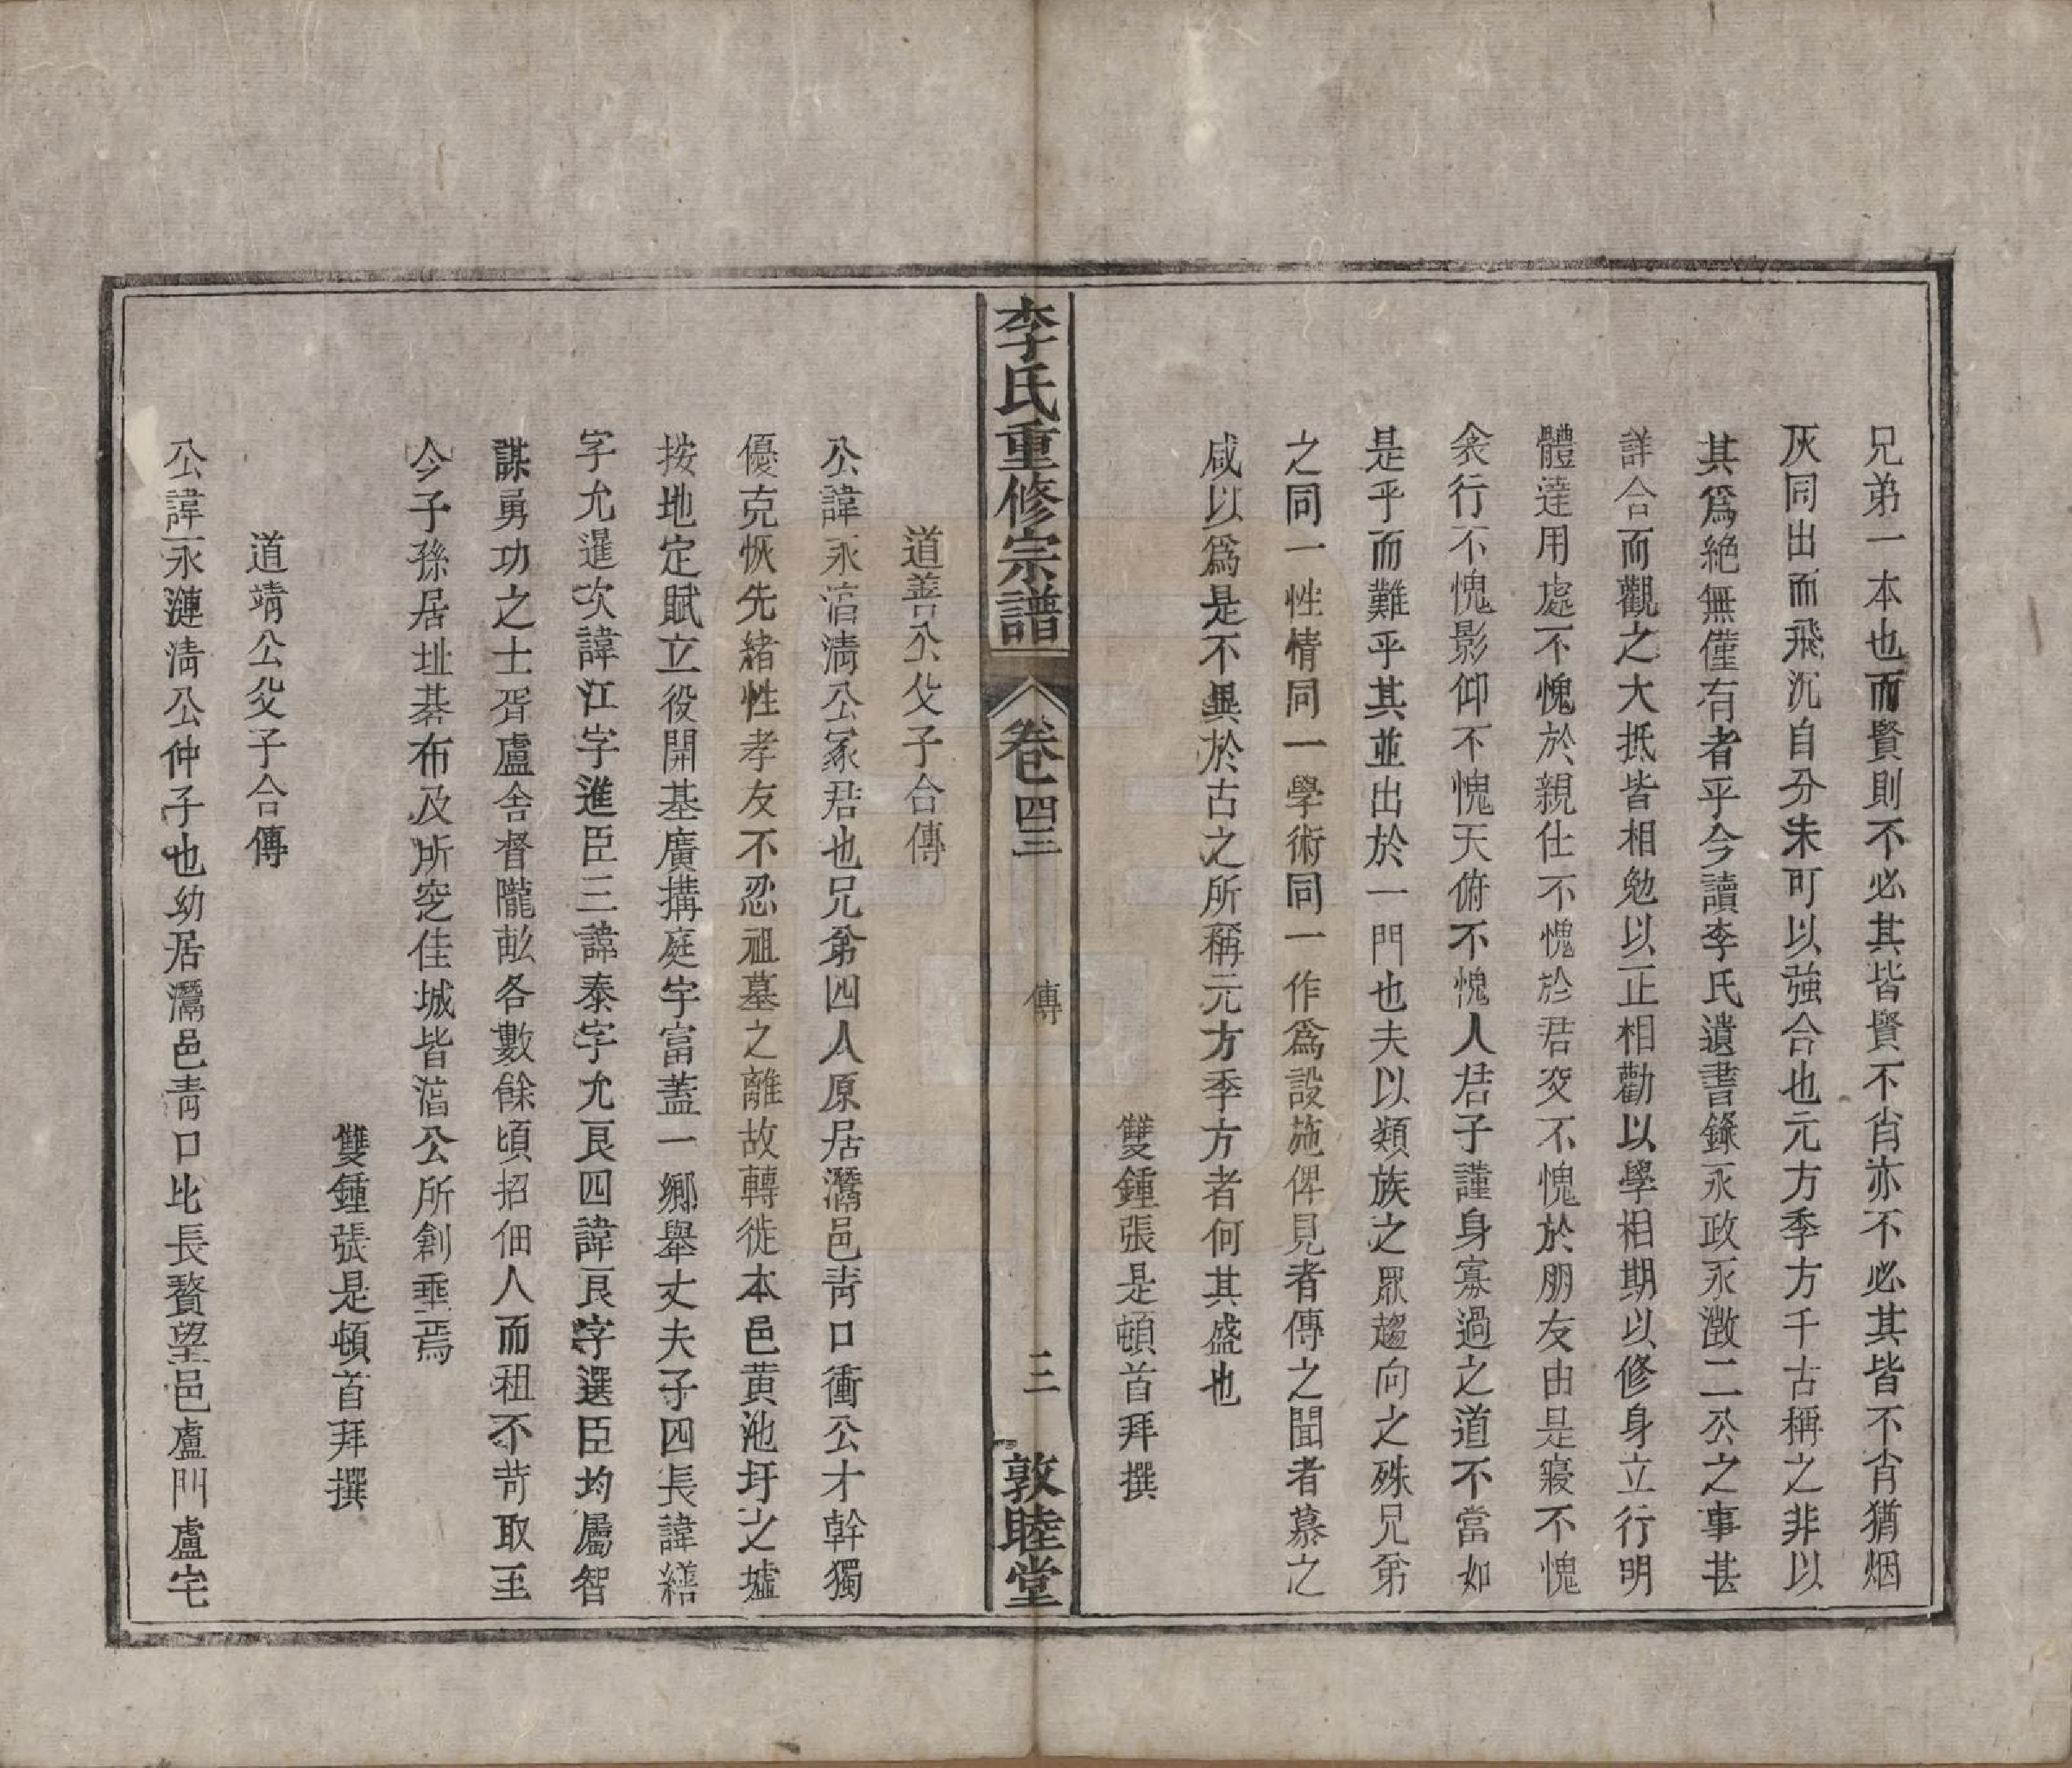 兄弟一本也而賢則不必其皆賢不肖亦不必其皆不肖猶烟
灰同出而飛沉自分朱可以強合也元方季方千古稱之非以
其爲絶無僅有者乎今讀李氏遺書錄永政永澂二公之事甚
詳合而觀之大抵皆相勉以正相勸以學相期以修身立行明
體達用處不愧於親仕不愧於君交不愧於朋友由是寢不愧
衾行不愧影仰不愧天俯不愧人君子謹身寡過之道不當如
是乎而難乎其並出於一門也夫以類族之眾趨向之殊兄弟
之同一性情同一學術同一作爲設施俾見者傳之聞者慕之
咸以爲是不異於古之所稱元方季方者何其盛也
雙鍾張是頓首拜撰
李氏重修宗譜 卷四二 傳 三 敦睦堂
道善公父子合傳
公諱永㵂淸公冢君也兄弟四人原居灊邑靑口衝公才幹獨
優克恢先緒性孝友不忍祖墓之離故轉徙本邑黄池圩之墟
按地定賦立役開基廣搆庭宇富蓋一鄉舉丈夫子四長諱繕
字允暹次諱江字進臣三諱泰字允良四諱良字選臣均屬智
謀勇功之士胥盧舍督隴畝各數餘頃招佃人而租不苛取至
今子孫居址碁布及所窆佳城皆㵂公所創垂焉
雙鍾張是頓首拜撰
道靖公父子合傳
公諱永漣淸公仲子也幼居灊邑靑口比長贅望邑盧門盧宅